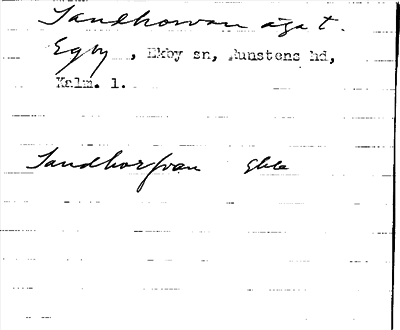 Sandhorvan äga t.
Egby, Ekby sn, Runstens hd,
Kalm. l.
Sandhorfvan